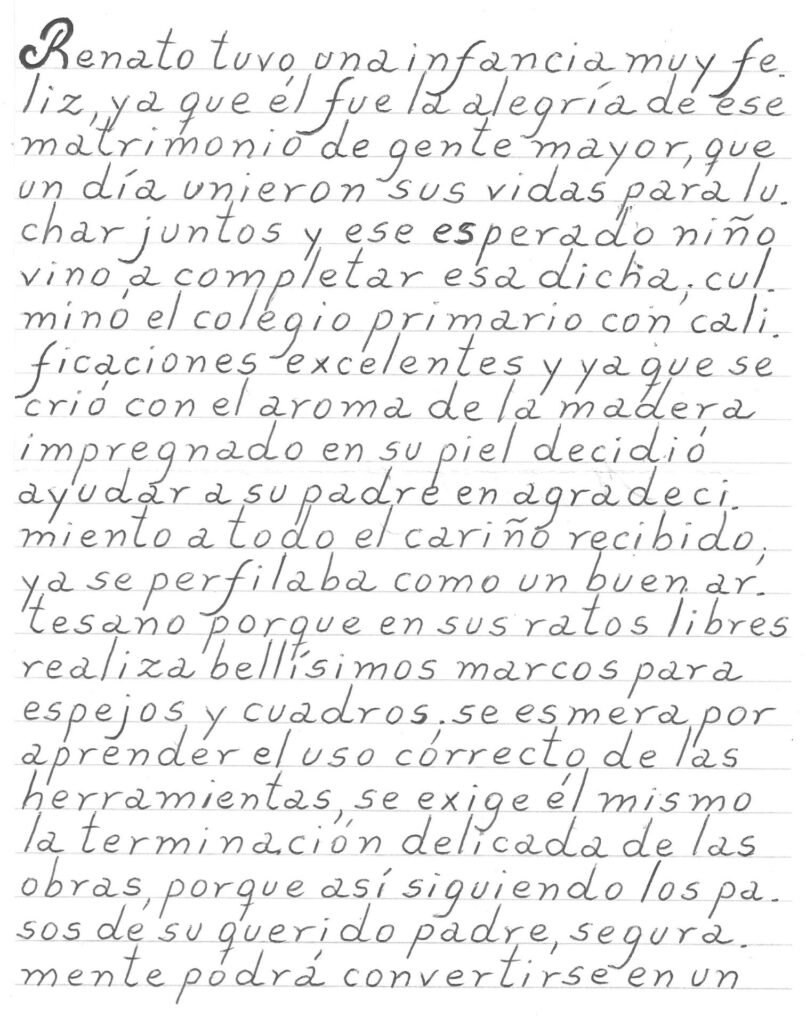 Renato tuvo una infancia muy fe.
liz, ya que él fue la alegría de ese
matrimonio de gente mayor, que
un día unieron sus vidas para lu.
char juntos y ese esperado niño
vino a completar esa dicha, cul.
minó el colegio primario con cali.
ficaciones excelentes y ya que se
crió con el aroma de la madera
impregnado en su piel decidió
ayudar a su padre en agradeci.
miento a todo el cariño recibido,
ya se perfilaba como un buen ar.
tesano porque en sus ratos libres
realiza bellísimos marcos para
espejos y cuadros. se esmera por
aprender el uso correcto de las
herramientas, se exige él mismo
la terminación delicada de las
obras, porque así siguiendo los pa.
sos de su querido padre, segura.
mente podrá convertirse en un